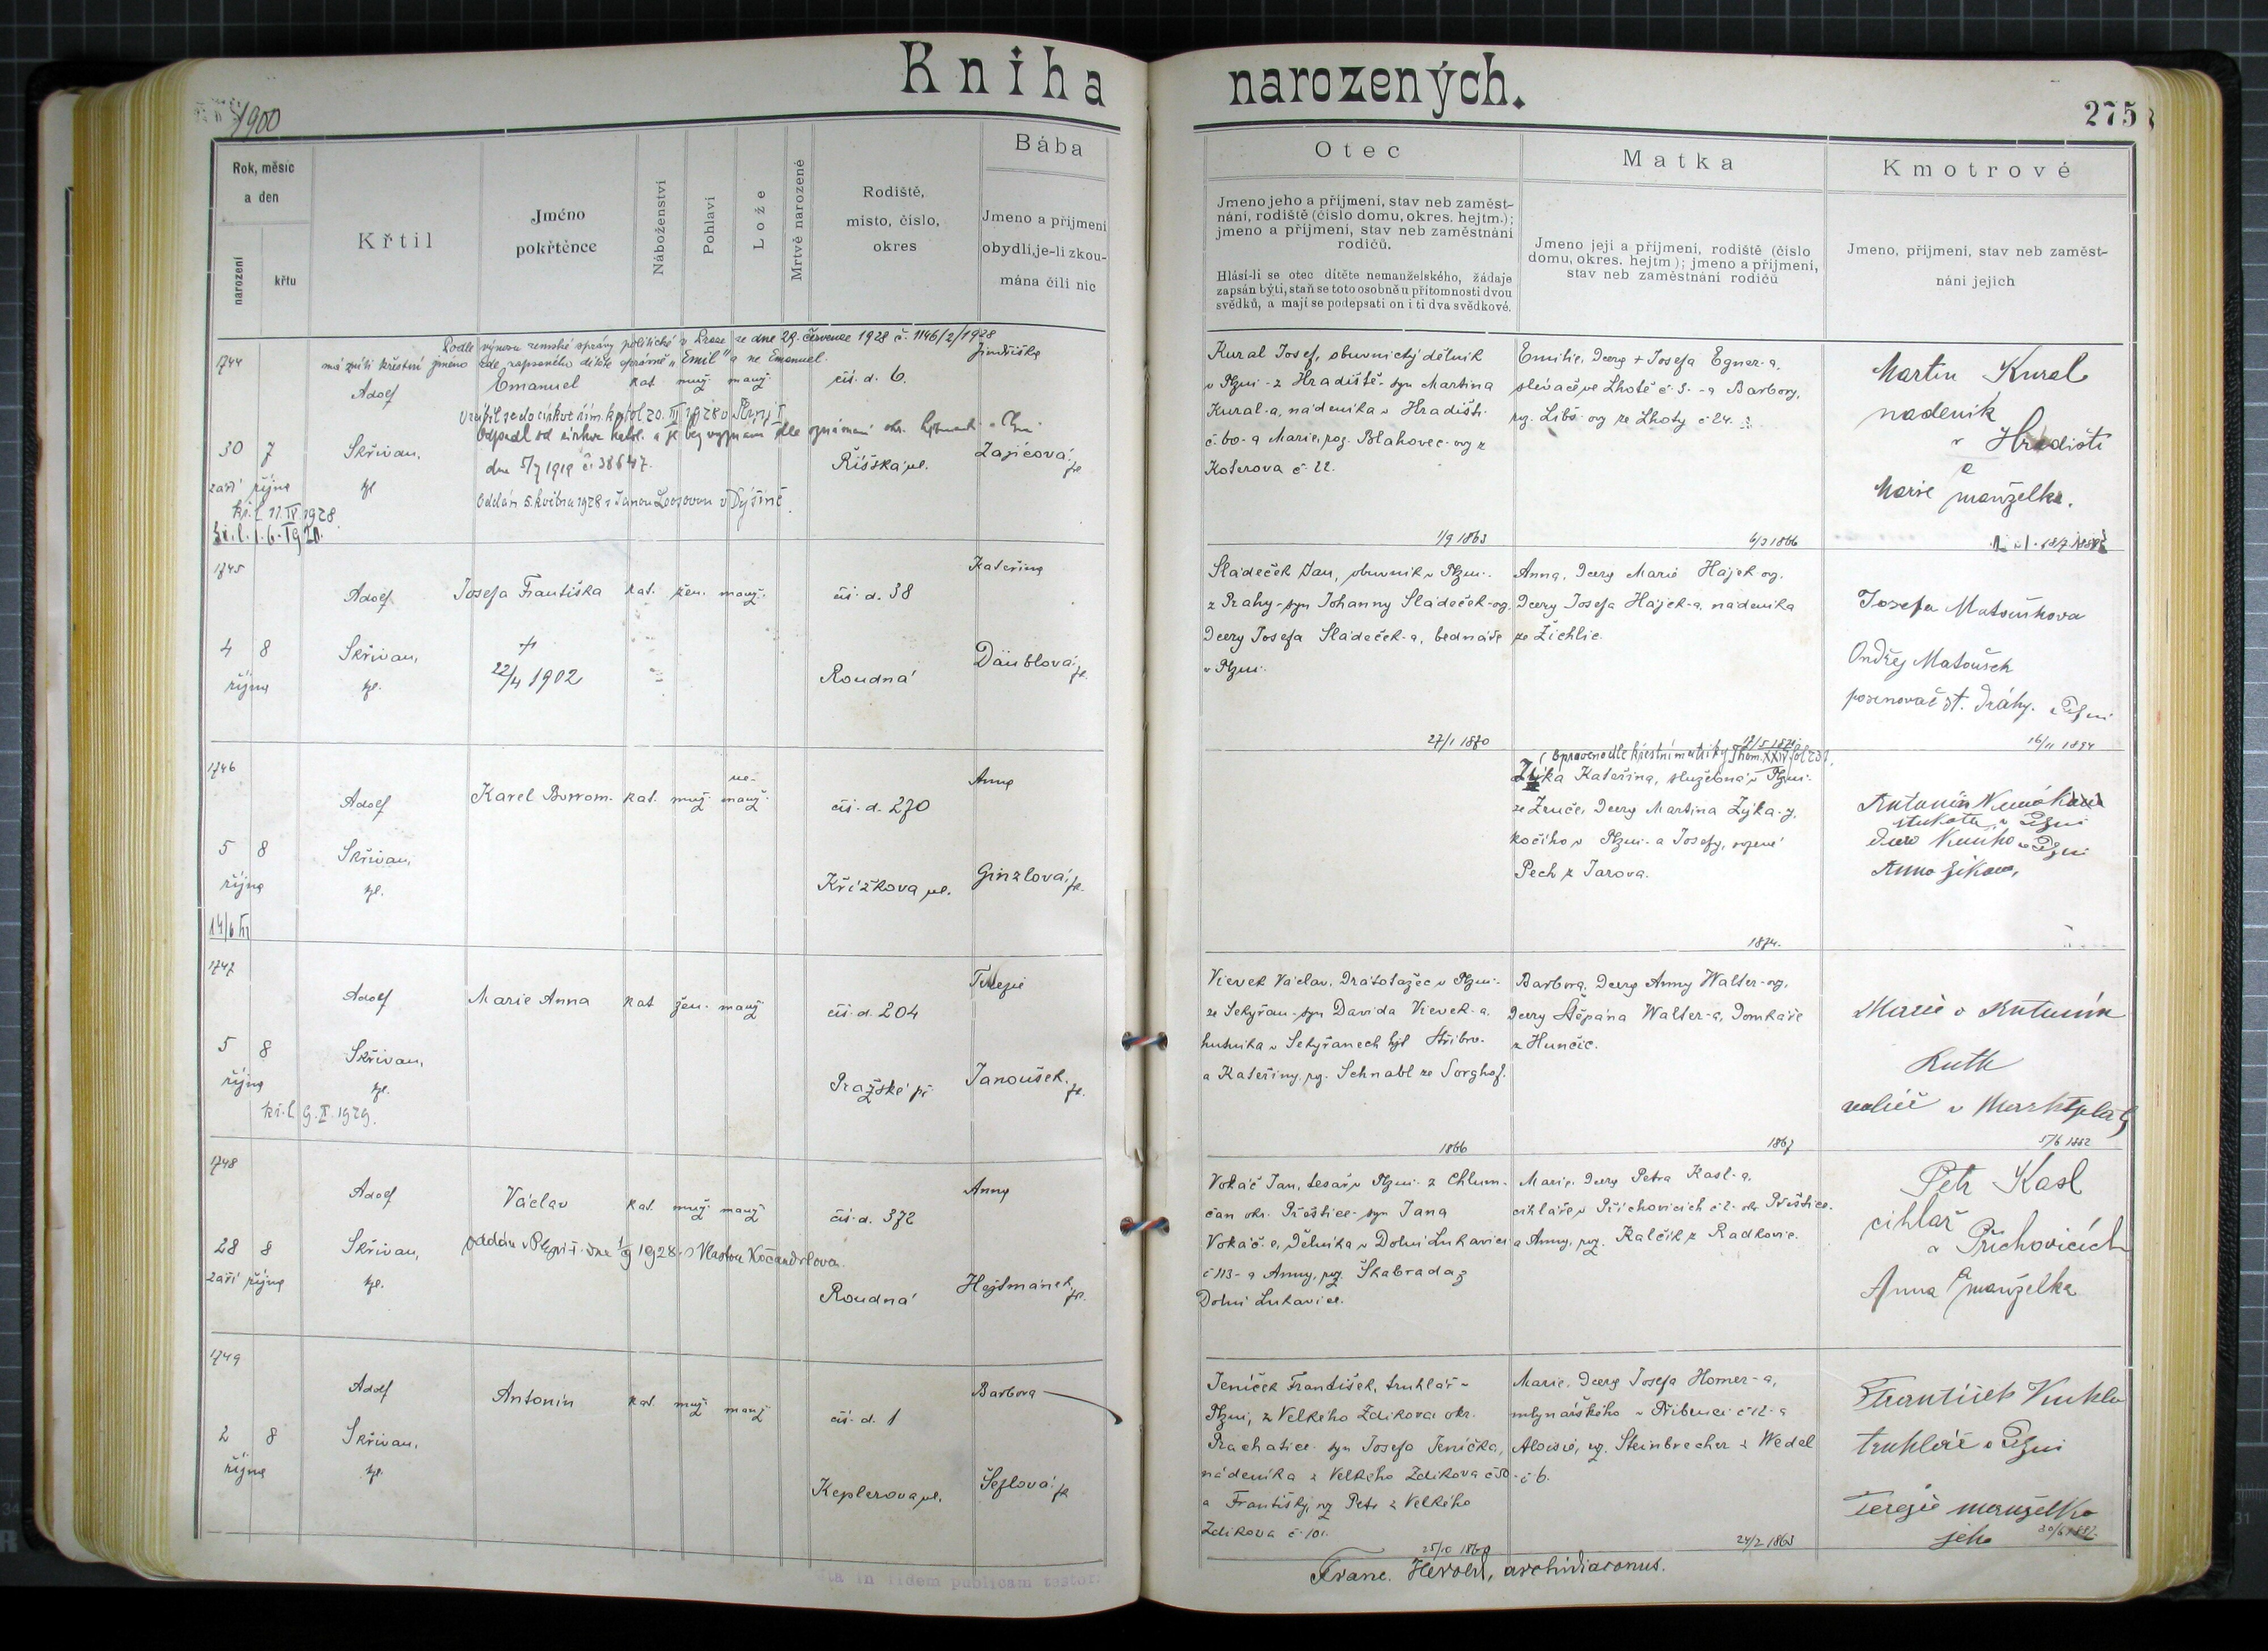 Kniha narozených.
1900
275
Rok, měsíc
a den
narození
křtu
Křtil
Jméno
pokřtěnce
Náboženství
Pohlaví
Lože
Mrtvě narozené
Rodiště,
místo, číslo,
okres
Bába
Jmeno a příjmení
obydlí, je-li zkou-
mána čili nic
Otec
Jmeno jeho a příjmení, stav neb zaměst-
nání, rodiště (číslo domu, okres. hejtm.);
jmeno a příjmení, stav neb zaměstnání
rodičů.
Hlásí-li se otec dítěte nemanželského, žádaje
zapsán býti, staň se toto osobně u přítomnosti dvou
svědků, a mají se podepsati on i ti dva svědkové.
Matka
Jmeno její a příjmení, rodiště (číslo
domu, okres. hejtm); jmeno a příjmení,
stav neb zaměstnání rodičů
Kmotrové
Jmeno, příjmení, stav neb zaměst-
nání jejich
1744
Podle výnosu zemské správy politické v Praze ze dne 29. července 1928 č. 1146/2/1928
má zníti křestní jméno zde zapsaného dítěte správně "Emil" a ne Emanuel.
30 7
září října
Adolf
Skřivan,
kpl
Emanuel
kat. muž. manž.
Vrátil se do církve řím. katol. 20. III 1928 v Plzni I
Odpadl od církve katol. a je bez vyznání dle oznámení okr.
dne 5/7 1919 č. 38647.
Oddán 5. května 1928 s Janou Loosovou v Dýšině.
kř. l. 17. IV 1928
čís. d. 6.
Říšská ul.
Jindřiška
Zajícová
Kural Josef, obuvnický dělník
v Plzni - z Hradiště - syn Martina
Kural-a, nádeníka v Hradišti
č. 60 - a Marie, roz. Blahovec-ovy z
Koterova č. 22.
1/9 1863
Emilie, dcera + Josefa Egner-a,
slévače ve Lhotě č. 3. - a Barbory,
roz. Libš-ovy ze Lhoty č 24.
6/3 1866
Martin Kural
nádeník
v Hradišti
a
Marie manželka.
1745
4 8
října
Adolf
Skřivan,
kpl.
Josefa Františka
kat. žen. manž.
+
22/4 1902
čís. d. 38
Roudná
Kateřina
Däublová
Sládeček Jan, obuvník v Plzni.
z Prahy - syn Johanny Sládeček-ovy,
dcery Josefa Sládeček-a, bednáře
v Plzni.
27/1 1870
Anna, dcera Marie Hájek-ovy,
dcery Josefa Hájek-a, nádeníka
ze Žichlic.
Josefa Matoušková
Ondřej Matoušek
posunovač st. dráhy v Plzni
16/11 1894
1746
5 8
října
14/6 11
Adolf
Skřivan,
kpl.
Karel Borrom.
kat. muž. ne-
manž.
čís. d. 270
Křížkova ul.
Anna
Ginzlová
(opraveno dle křestní matriky Thom. XXIV fol 231.
Zýka Kateřina, služebná v Plzni.
ze Zruče, dcera Martina Zýka-y,
kočího v Plzni - a Josefy, rozené
Pech z Jarova.
1874.
1747
5 8
října
kř. l. 9. X. 1929.
Adolf
Skřivan,
kpl.
Marie Anna
kat. žen. manž.
čís. d. 204
Pražské př.
Terezie
Janoušek.
Vievek Václav, drátotažec v Plzni
ze Sekyřan - syn Davida Vievek-a,
hutníka v Sekyřanech hjt Stříbro -
a Kateřiny, roz. Schnabl ze Sorghof.
1866
Barbora, dcera Anny Walter-ovy,
dcery Štěpána Walter-a, domkáře
z Hunčic.
1867
Marie a Antonín
Ruth
v
5/6 1882
1748
28 8
září října
Adolf
Skřivan,
kpl.
Václav
kat. muž. manž.
oddán v Plzni I. dne 1/9 1928 s Vlastou Kočandrlovou
čís. d. 372
Roudná
Anna
Hejtmánek
Vokáč Jan, tesař v Plzni - z Chlum-
čan okr. Přeštice - syn Jana
Vokáč-a, dělníka v Dolní Lukavici
č 113 - a Anny, roz. Škabrada z
Dolní Lukavice.
Marie, dcera Petra Kasl-a,
cihláře v Příchovicích č 2. okr. Přeštice.
a Anny, roz. Kalčík z Radkovic.
Petr Kasl
cihlař
v Příchovicích
a
Anna manželka
1749
2 8
října
Adolf
Skřivan,
kpl.
Antonín
kat. muž. manž.
čís. d. 1
Keplerova ul.
Barbora
Šejlová
Jeníček František, truhlář v
Plzni, z Velkého Zdikova okr.
Prachatice - syn Josefa Jeníčka,
nádeníka z Velkého Zdikova č 50
a Františky, roz. Petr z Velkého
Zdikova č. 101.
Marie, dcera Josefa Homer-a,
mlynářského v č 12 - a
Aloisie, roz. Steinbrecher z Wedel
č 6.
24/2 1863
František Kukla
truhlář v Plzni
Terezie manželka
jeho
Franc. Herold, archidiaconus.
ta in fidem publicam testor.